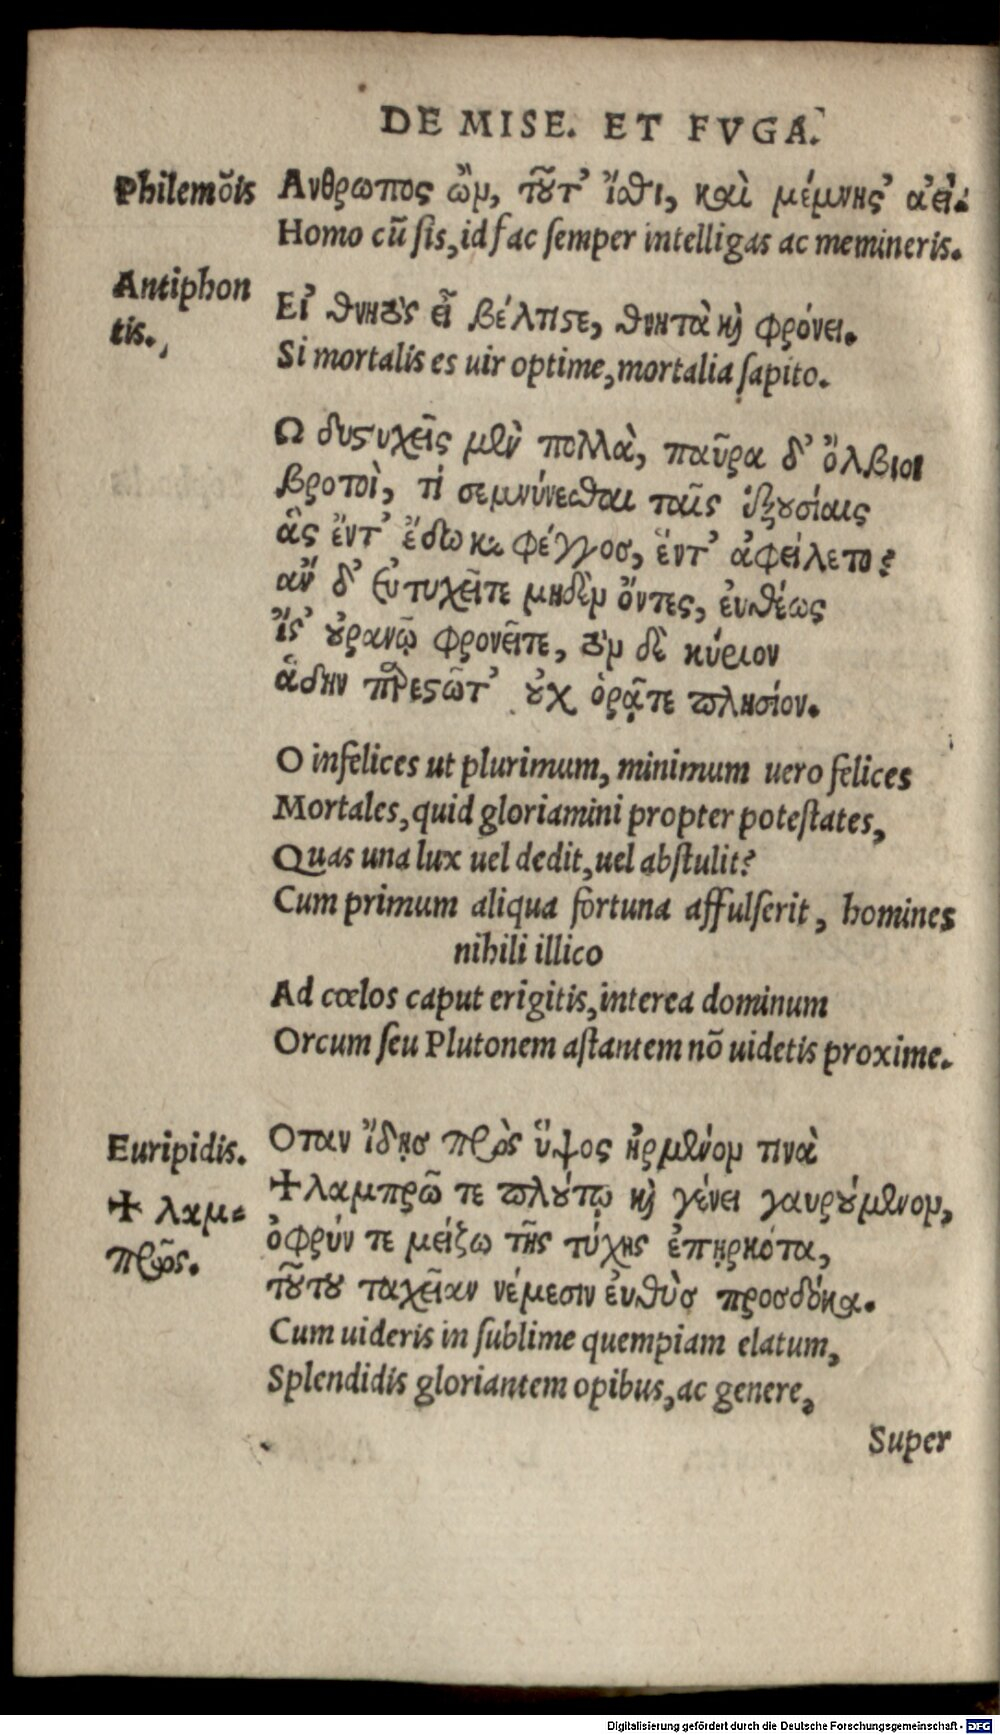 DE MISE. ET FVGA.
Philemõis Ανθρωπος ὢν, τοῦτ' ἴσθι, καὶ μέμνης' ἀεί.
Homo cũ sis, id fac semper intelligas ac memineris.
Antiphon
tis.
Εἰ θνητὸς εἶ βέλτιστε, θνητὰ καὶ φρόνει.
Si mortalis es uir optime, mortalia sapito.
Ω δυστυχεῖς μὲν πολλὰ, παῦρα δ' ὄλβιοι
βροτοὶ, τί σεμνύνεσθαι ταῖς ἐξουσίαις
ἃς ἕντ' ἔδωκε φέγγοσ, ἕντ' ἀφείλετο;
ἂν δ' εὐτυχεῖτε μηδὲν ὄντες, ἐυθέως
ἴς' οὐρανῷ φρονεῖτε, τὸν δὲ κύριον
ἅδην παρεστῶτ' οὐχ ὁρᾶτε πλησίον.
O infelices ut plurimum, minimum uero felices
Mortales, quid gloriamini propter potestates,
Quas una lux uel dedit, uel abstulit?
Cum primum aliqua fortuna affulserit, homines
nihili illico
Ad cœlos caput erigitis, interea dominum
Orcum seu Plutonem astantem nõ uidetis proxime.
Euripidis. Οταν ἴδῃσ πρὸς ὕψος ἠρμένον τινὰ
✠ λαμ=
πρῶς.
✠λαμπρῶ τε πλούτῳ καὶ γένει γαυρούμενον,
ὀφρύν τε μείζω τῆς τύχης ἐπῃρκότα,
τούτου ταχεῖαν νέμεσιν ἐυθὺσ προσδόκα.
Cum uideris in sublime quempiam elatum,
Splendidis gloriantem opibus, ac genere,
Super
Digitalisierung gefördert durch die Deutsche Forschungsgemeinschaft - DFG